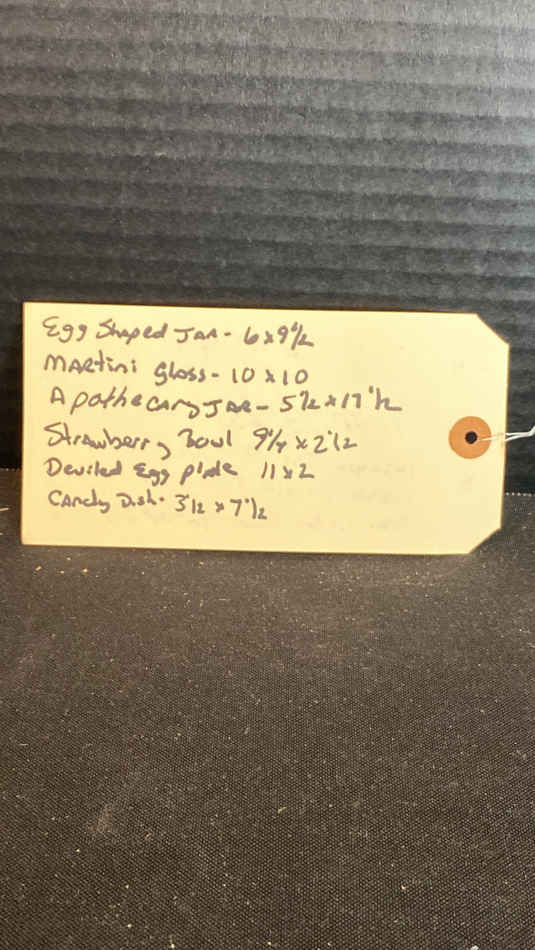 Egg Shaped JAR - 6x9 1/2
MARtini glass - 10 x 10
ApothecARy JAR - 5 1/2 x 17 1/2
Strawberry Bowl 9 1/4 x 2 1/2
Deviled Egg plate 11 x 2
CAndy Dish - 3 1/2 x 7 1/2